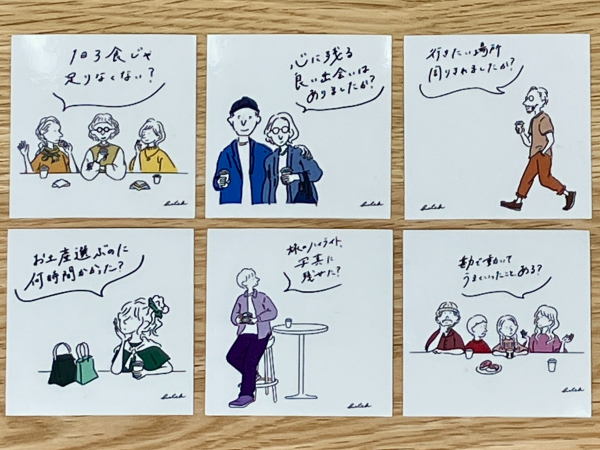 1日3食じゃ
足りなくない?
心に残る
良い出会いは
ありましたか?
行きたい場所
回りきれましたか?
お土産選ぶのに
何時間かかった?
旅のハイライト、
写真に
残せた?
勘で動いて
うまくいったこと、ある?